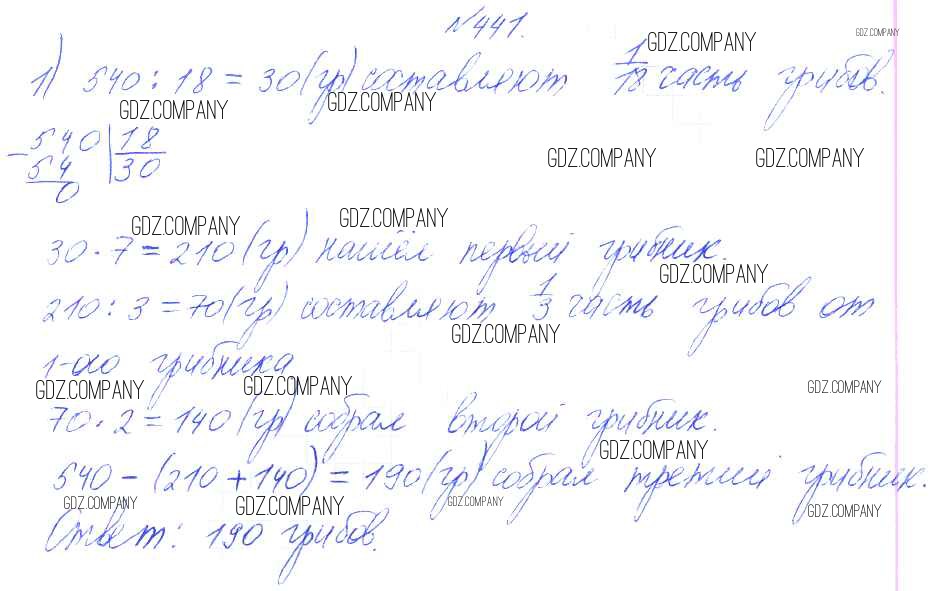 №441.
1) 540 : 18 = 30 (гр) составляют 1/18 часть грибов.
GDZ.COMPANY
GDZ.COMPANY
GDZ.COMPANY
GDZ.COMPANY
- 540 | 18
54 | 30
0
GDZ.COMPANY
GDZ.COMPANY
GDZ.COMPANY
GDZ.COMPANY
30 · 7 = 210 (гр) нашёл первый грибник.
GDZ.COMPANY
210 : 3 = 70 (гр) составляют 1/3 часть грибов от
GDZ.COMPANY
1-ого грибника
GDZ.COMPANY
GDZ.COMPANY
GDZ.COMPANY
70 · 2 = 140 (гр) собрал второй грибник.
GDZ.COMPANY
540 - (210 + 140) = 190 (гр) собрал третий грибник.
GDZ.COMPANY
GDZ.COMPANY
GDZ.COMPANY
GDZ.COMPANY
Ответ: 190 грибов.